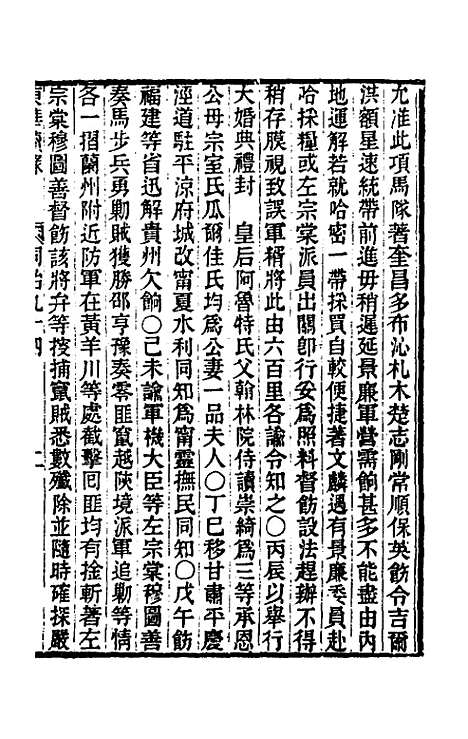 允准此項馬隊著奎昌多布沁札木楚志剛常順保英飭令吉爾
洪額星速統帶前進毋稍遲延景廉軍營需餉甚多不能盡由內
地運解若就哈密一帶採買自較便捷著文麟遇有景廉委員赴
哈採糧或左宗棠派員出關卽行妥爲照料督飭設法趕辦不得
稍存膜視致誤軍糈將此由六百里各諭令知之〇丙辰以舉行
大婚典禮封 皇后阿魯特氏父翰林院侍讀崇綺爲三等承恩
公母宗室氏瓜爾佳氏均爲公妻一品夫人〇丁巳移甘肅平慶
涇道駐平涼府城改甯夏水利同知爲甯靈撫民同知〇戊午飭
福建等省迅解貴州欠餉〇己未諭軍機大臣等左宗棠穆圖善
奏馬步兵勇勦賊獲勝邵亨豫奏零匪竄越陝境派軍追勦等情
各一摺蘭州附近防軍在黃羊川等處截擊回匪均有擒斬著左
宗棠穆圖善督飭該將弁等搜捕竄賊悉數殲除並隨時確探嚴
同治九十四
二